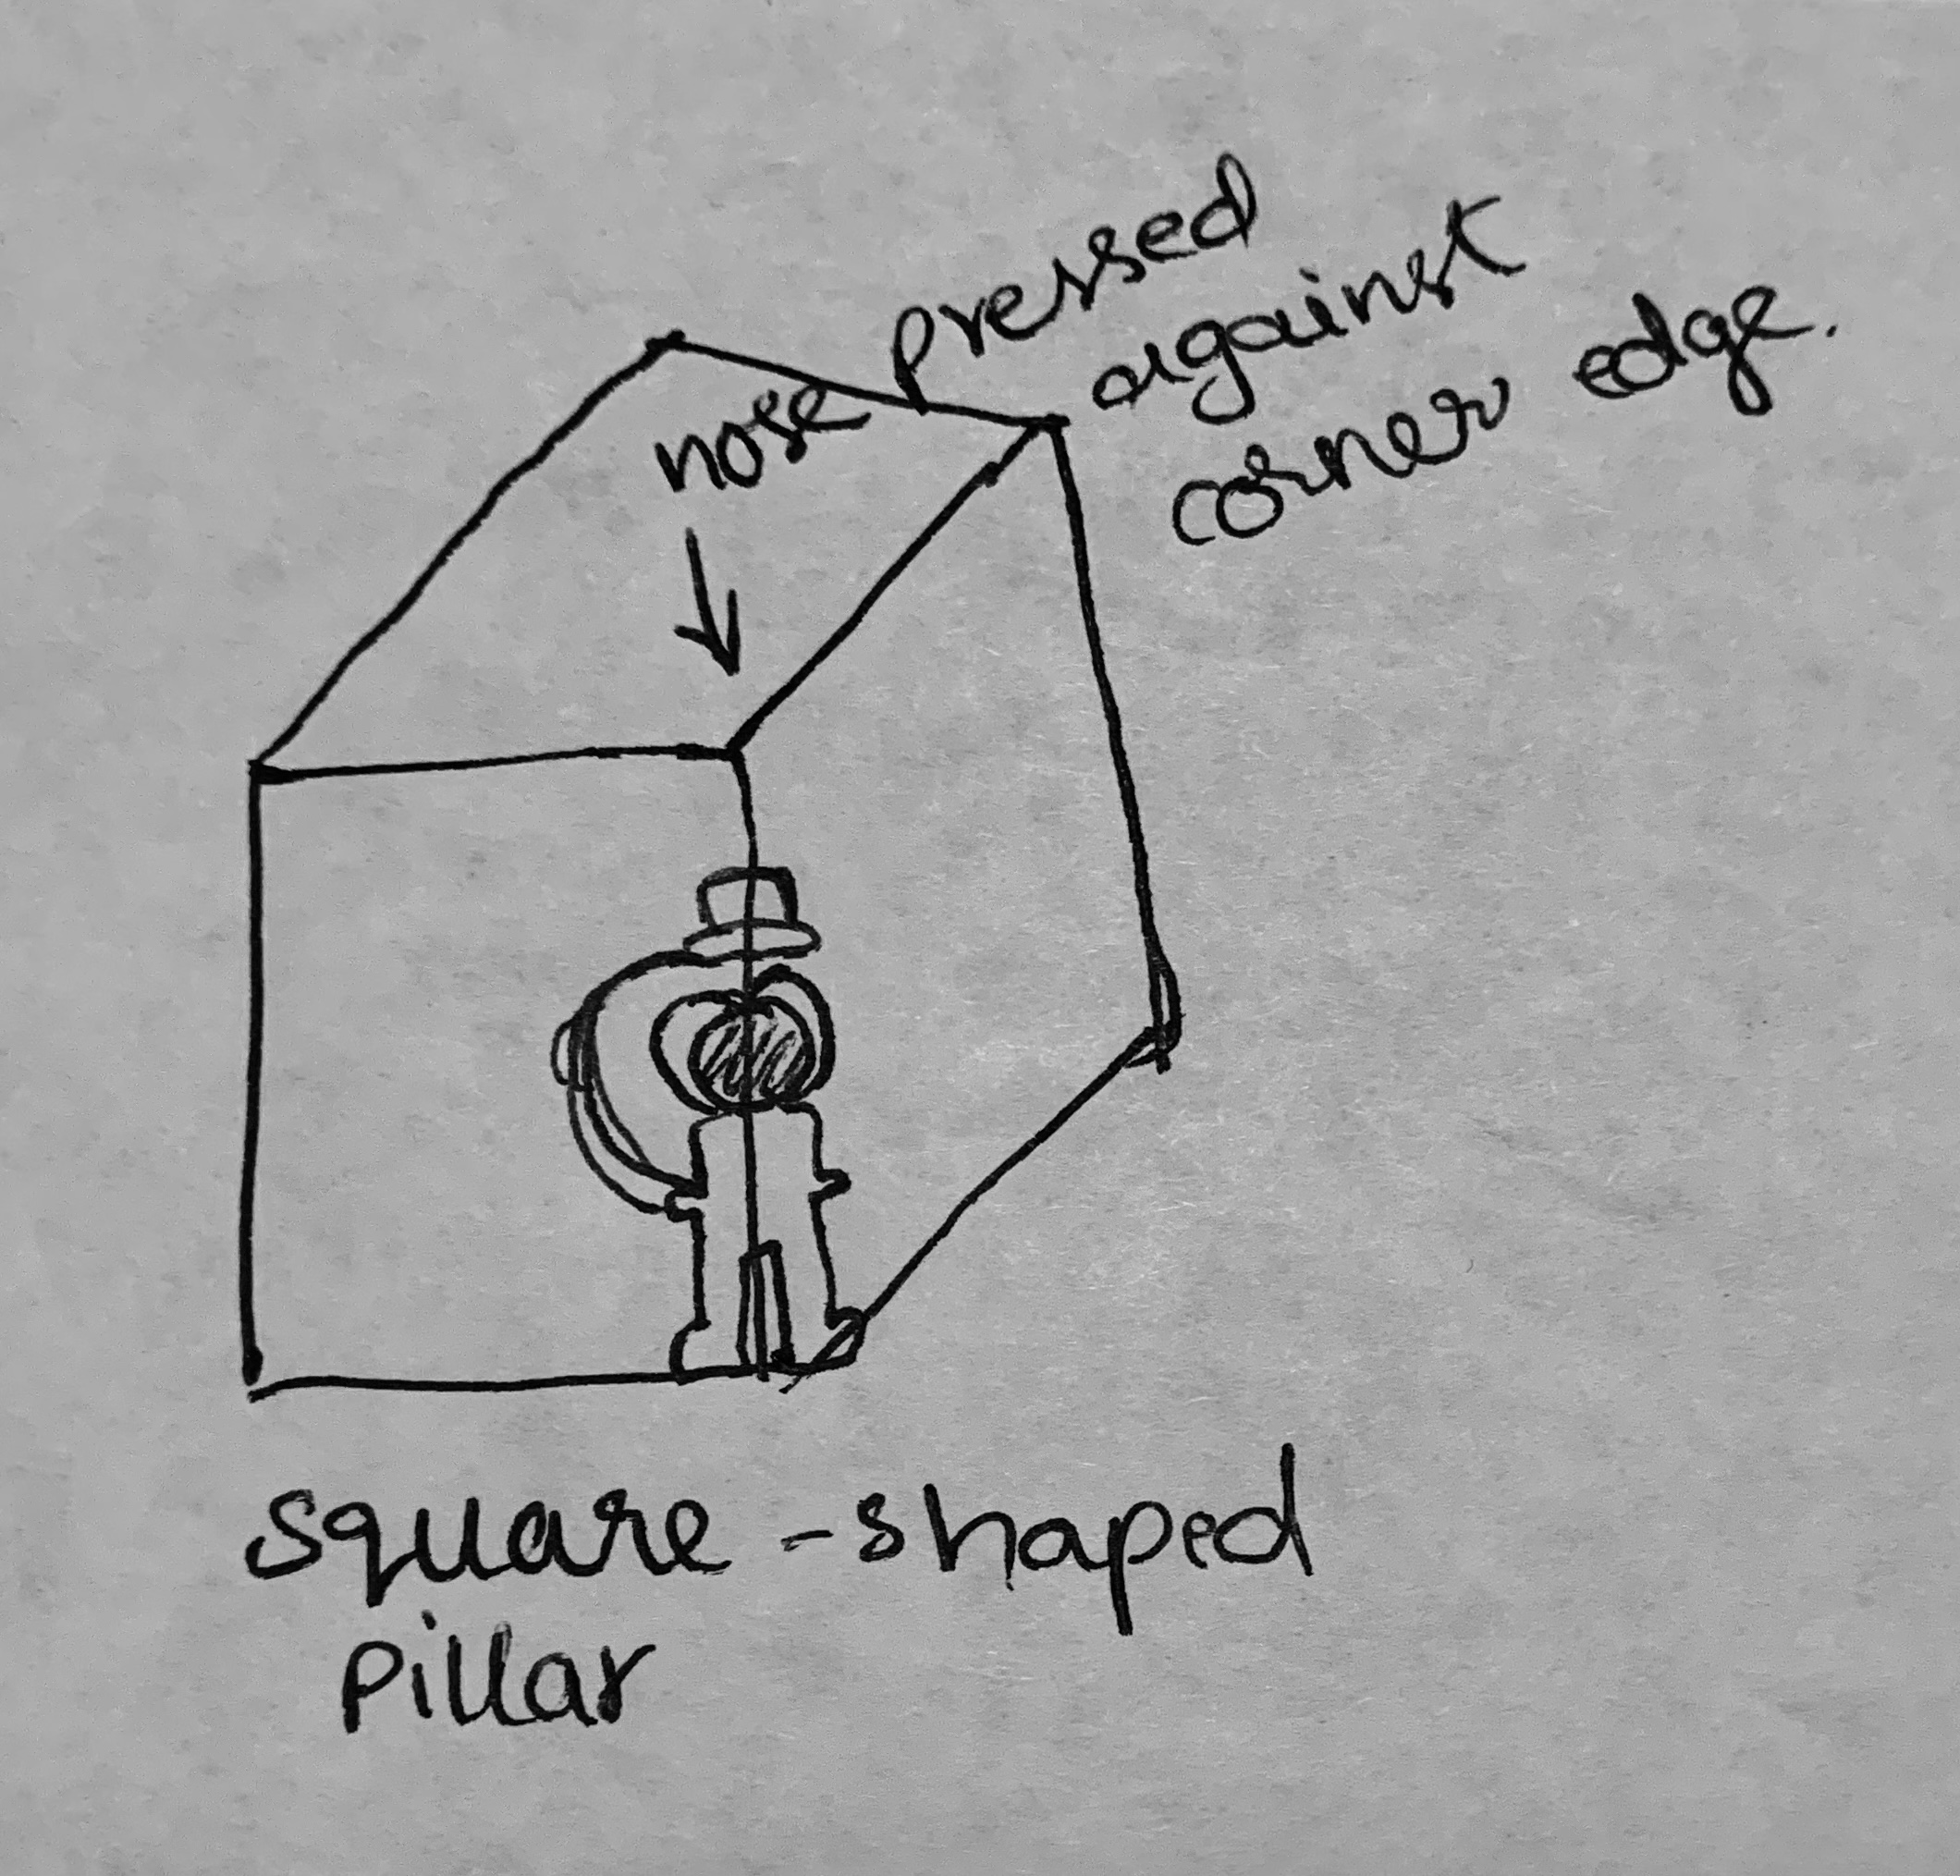 nose pressed
against
corner edge.
square-shaped
pillar